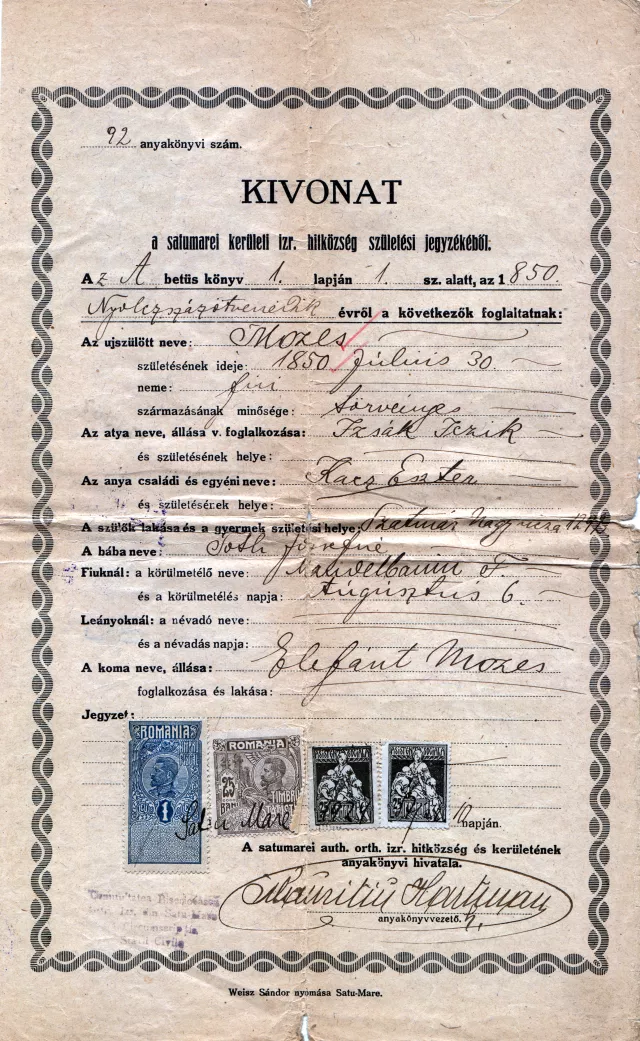 92 anyakönyvi szám.
KIVONAT
a satumarei kerületi izr. hitközség születési jegyzékéből.
Az A betüs könyv 1. lapján 1. sz. alatt, az 1850.
évről a következők foglaltatnak:
Az ujszülött neve: Mozes
születésének ideje: 1850 Július 30.
neme: fiú
származásának minősége: törvényes
Az atya neve, állása v. foglalkozása: Izsák Iczik
és születésének helye:
Az anya családi és egyéni neve: Kacz Eszter
és születésének helye:
A szülők lakása és a gyermek születési helye: Szatmár
A bába neve: Tóth
Fiuknál: a körülmetélő neve: Mandelbaum F.
és a körülmetélés napja: Augusztus 6.
Leányoknál: a névadó neve:
és a névadás napja:
A koma neve, állása: Elefánt Mozes
foglalkozása és lakása:
Jegyzet:
ROMANIA
1
ROMANIA
25
BANI
TIMBRU
Satu Mare
napján.
A satumarei auth. orth. izr. hitközség és kerületének
anyakönyvi hivatala.
Mauritiu Hartman
anyakönyvvezető.
Weisz Sándor nyomása Satu-Mare.